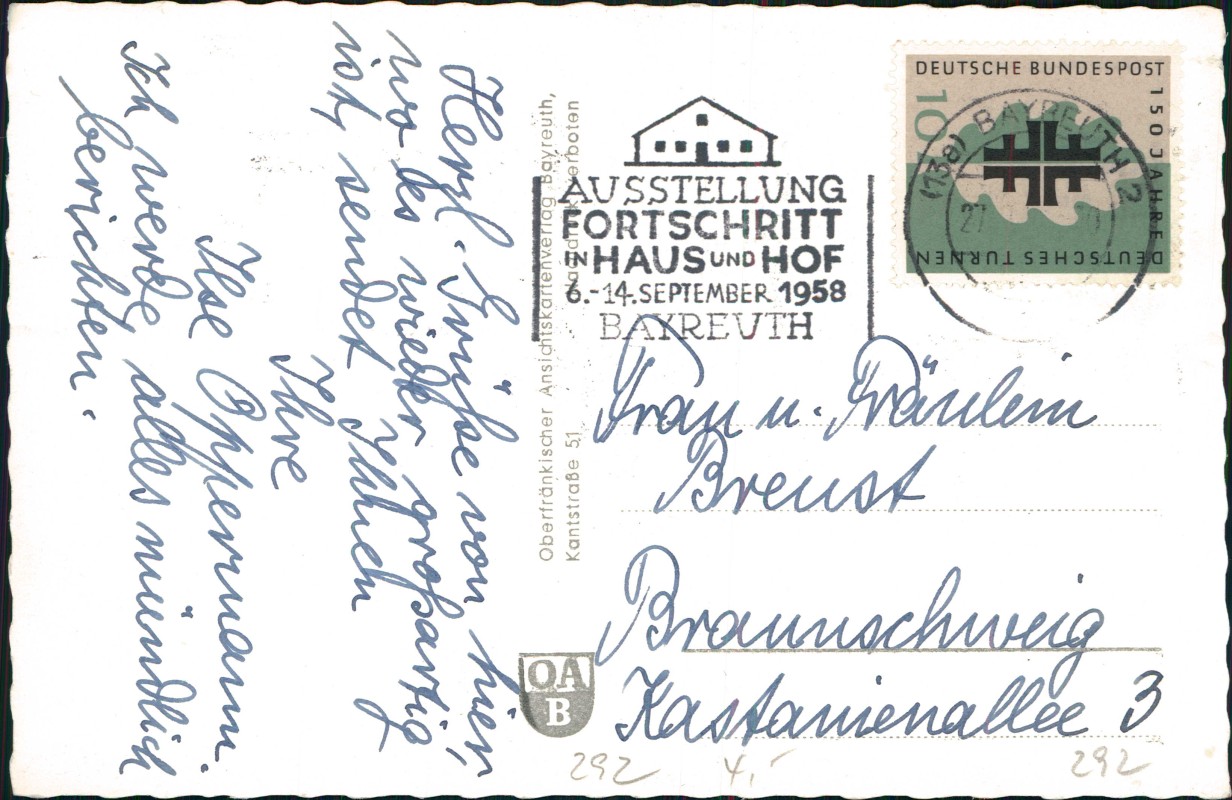 Herzl. Grüße von hier,
wo es wieder großartig
ist, sendet Ihnen
Ihre
Ilse Oppermann.
Ich werde alles mündlich
berichten.
Oberfränkischer Ansichtskartenverlag Bayreuth,
Kantstraße 51 Nachdruck verboten
OA
B
AUSSTELLUNG
FORTSCHRITT
IN HAUS UND HOF
6.-14. SEPTEMBER 1958
BAYREUTH
DEUTSCHE BUNDESPOST
150 JAHRE
DEUTSCHES TURNEN
10
(13a) BAYREUTH 2
27
Frau u. Fräulein
Breust
Braunschweig
Kastanienallee 3
292 4,- 292